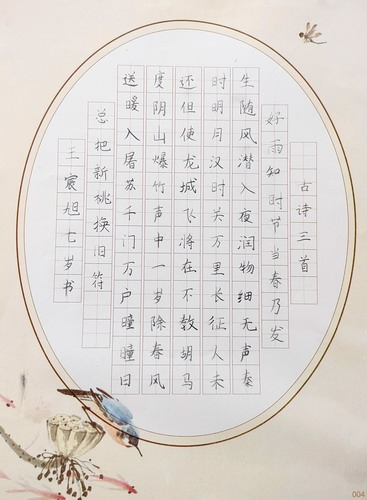 古诗三首
好雨知时节当春乃发
生随风潜入夜润物细无声秦
时明月汉时关万里长征人未
还但使龙城飞将在不教胡马
度阴山爆竹声中一岁除春风
送暖入屠苏千门万户曈曈日
总把新桃换旧符
王宸旭七岁书
004